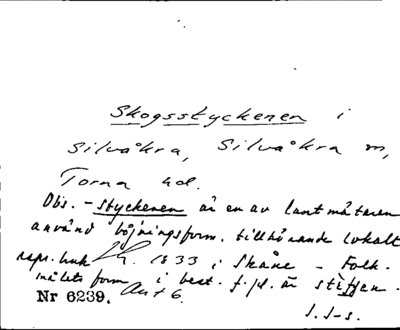 Skogsstyckenen i
Silvåkra, Silvåkra sn,
Torna hd.
Obs. - styckenen är en av lantmätaren
använd böjningsform, tillhörande lokalt
1833 i Skåne - Folk-
målets form i best. f. pl. är
Nr 6239.